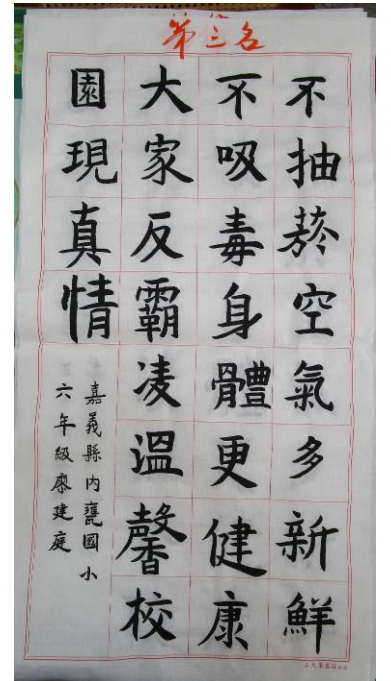 第三名
不抽菸空氣多新鮮
不吸毒身體更健康
大家反霸凌溫馨校
園現真情
嘉義縣內甕國小
六年級廖建庭